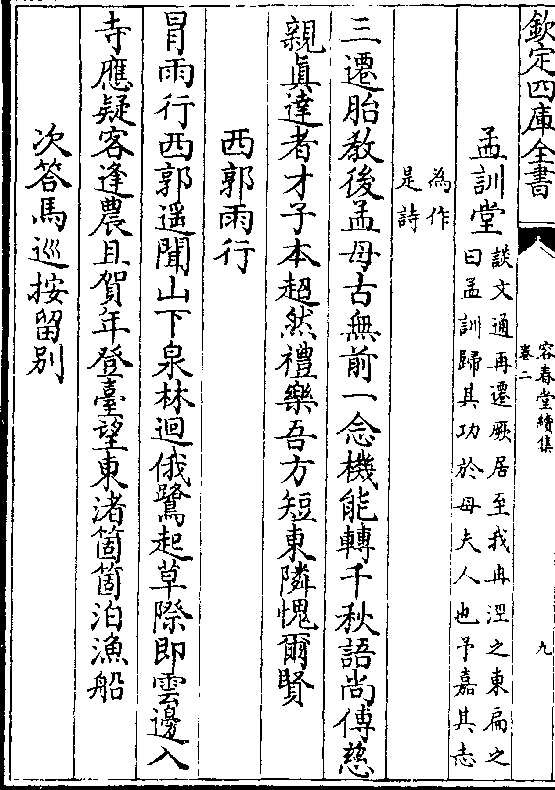 欽定四庫全書
容春堂續集
卷二
九
孟訓堂
談文通再遷厥居至我冉涇之東扁之
曰孟訓歸其功於母夫人也予嘉其志
為作
是詩
三遷胎教後孟母古無前一念機能轉千秋語尚傳慈
親眞達者才子本超然禮樂吾方短東隣愧爾賢
西郭雨行
冒雨行西郭遥聞山下泉林迴俄鷺起草際即雲邊入
寺應疑客逢農且賀年登臺望東渚箇箇泊漁船
次答馬巡按留别